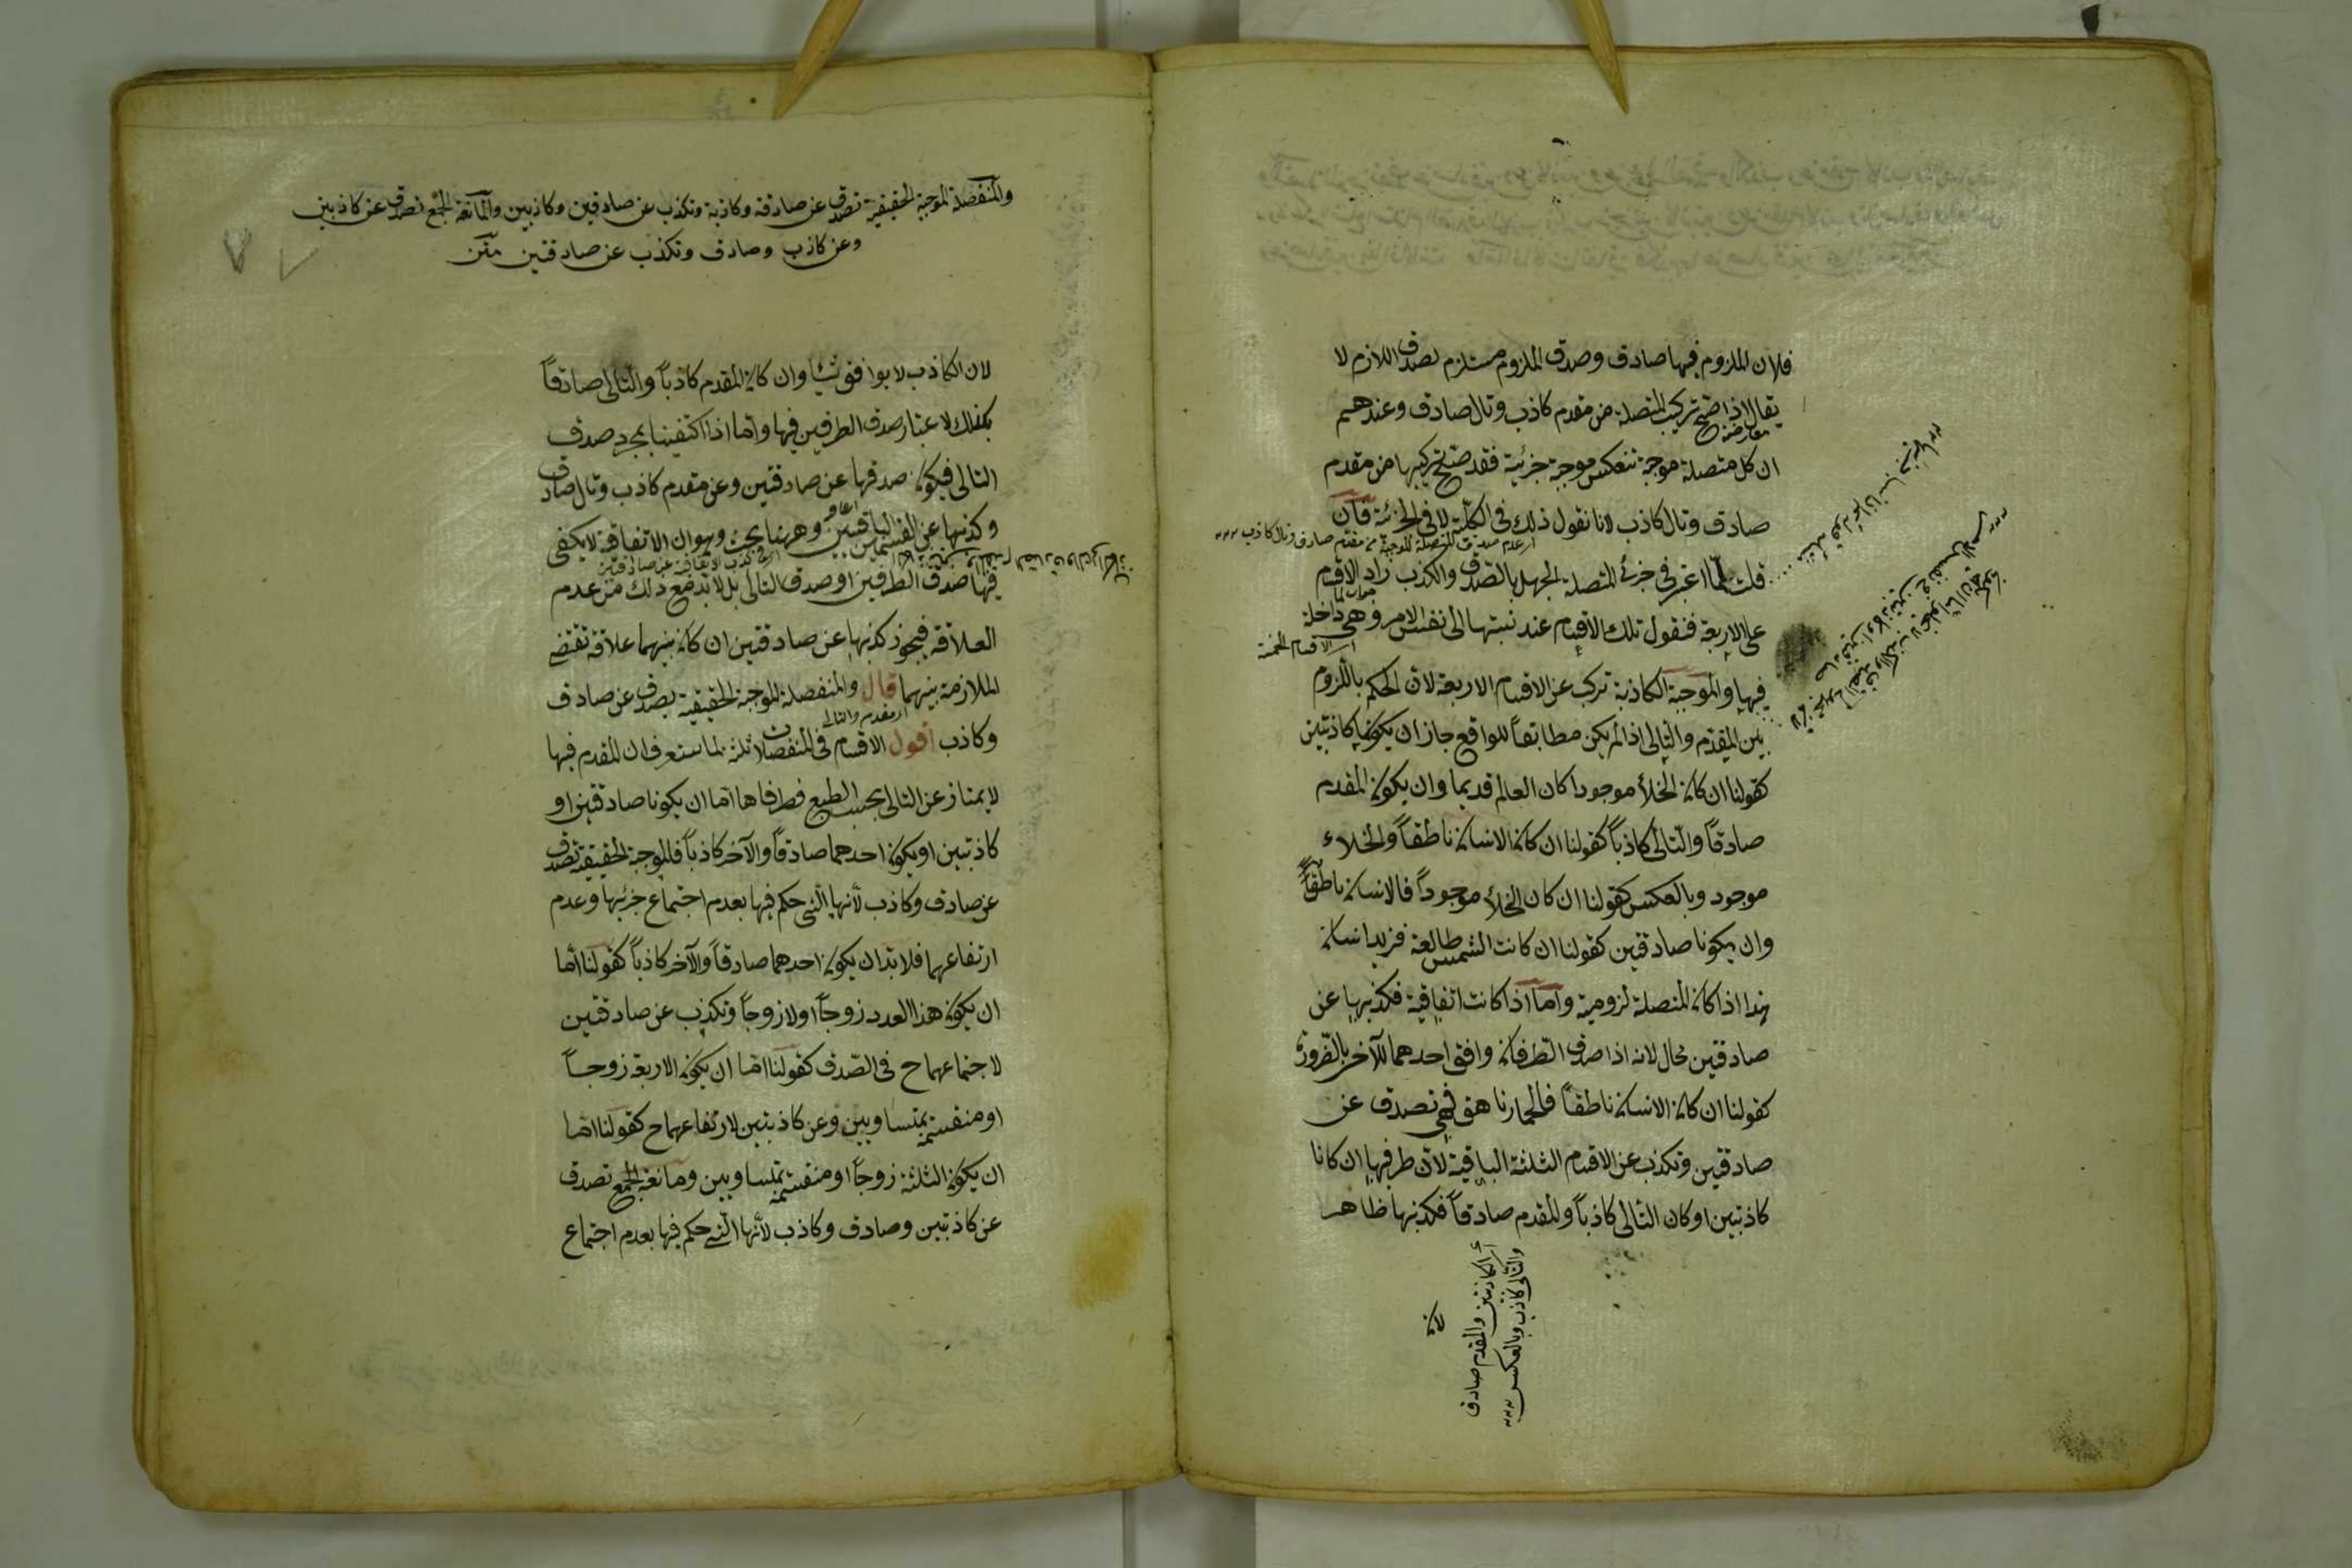 فلان الملزوم فيها صادق وصدق الملزوم مستلزم لصدق اللازم لا
يقال اذا صح تركيب المتصلة من مقدم كاذب وتال صادق وعندهم
معارضة
ان كل متصلة موجبة تنعكس موجبة جزئية فقد صح تركيبها من مقدم
صادق وتال كاذب لانا نقول ذلك فى الكلية لا فى الجزئية فان
قلت لما اعتبر فى جزئى المتصلة الجهل بالصدق والكذب زاد الاقسام
جواب لما
على الاربعة فنقول تلك الاقسام عند نسبتها الى نفس الامر وهى داخلة
اى الاقسام الخمسة
فيها والموجبة الكاذبة تركب عن الاقسام الاربعة لان الحكم باللزوم
بين المقدم والتالى اذا لم يكن مطابقاً للواقع جاز ان يكونا كاذبتين
كقولنا ان كان الخلأ موجودا كان العالم قديما وان يكون المقدم
صادقاً والتالى كاذباً كقولنا ان كان الانسان ناطقاً والخلاء
موجود وبالعكس كقولنا ان كان الخلأ موجوداً فالانسان ناطق
وان يكونا صادقتين كقولنا ان كانت الشمس طالعة فزيد انسان
هذا اذا كان المتصلة لزومية واما اذا كانت اتفاقية فكذبها عن
صادقتين محال لانه اذا صدق الطرفان وافق احدهما للآخر بالضرورة
كقولنا ان كان الانسان ناطقاً فالحمار ناهق فهى تصدق عن
صادقتين وتكذب عن الاقسام الثلثة الباقية لان طرفيها ان كانا
كاذبتين او كان التالى كاذباً والمقدم صادقاً فكذبها ظاهر
اى الكاذبتين والمقدم صادق
والتالى كاذب وبالعكس
لان
والمنفصلة الموجبة الحقيقية تصدق عن صادقة وكاذبة وتكذب عن صادقين وكاذبين والمانعة الجمع تصدق عن كاذبين
وعن كاذب وصادق وتكذب عن صادقتين متن
لان الكاذب لا يوافق شيئا وان كان المقدم كاذباً والتالى صادقاً
فكذلك لاعتبار صدق الطرفين فيها واما اذا اكتفينا بمجرد صدق
التالى فيكون صدقها عن صادقتين وعن مقدم كاذب وتال صادق
وكذبها عن القسمين الباقيين وههنا بحث وهو ان الاتفاقية لا يكفى
فيها صدق الطرفين او صدق التالى بل لابد مع ذلك من عدم
العلاقة فيجوز كذبها عن صادقتين ان كان بينهما علاقة تقتضى
الملازمة بينهما قال والمنفصلة الموجبة الحقيقية يصدق عن صادق
اى مقدم والتالى
وكاذب اقول الاقسام فى المنفصلات ثلثة لما ستعرف ان المقدم فيها
لا يمتاز عن التالى بحسب الطبع فطرفاها اما ان يكونا صادقتين او
كاذبتين او يكون احدهما صادقاً والآخر كاذباً فالموجبة الحقيقية تصدق
عن صادق وكاذب لانها التى حكم فيها بعدم اجتماع جزئيها وعدم
ارتفاعهما فلا بد ان يكون احدهما صادقاً والآخر كاذباً كقولنا اما
ان يكون هذا العدد زوجاً او لا زوجاً وتكذب عن صادقتين
لاجتماعهما ح فى الصدق كقولنا اما ان يكون الاربعة زوجاً
او منقسمة بمتساويين وعن كاذبتين لارتفاعهما ح كقولنا اما
ان يكون الثلثة زوجاً او منقسمة بمتساويين ومانعة الجمع تصدق
عن كاذبتين وصادق وكاذب لانها التى حكم فيها بعدم اجتماع